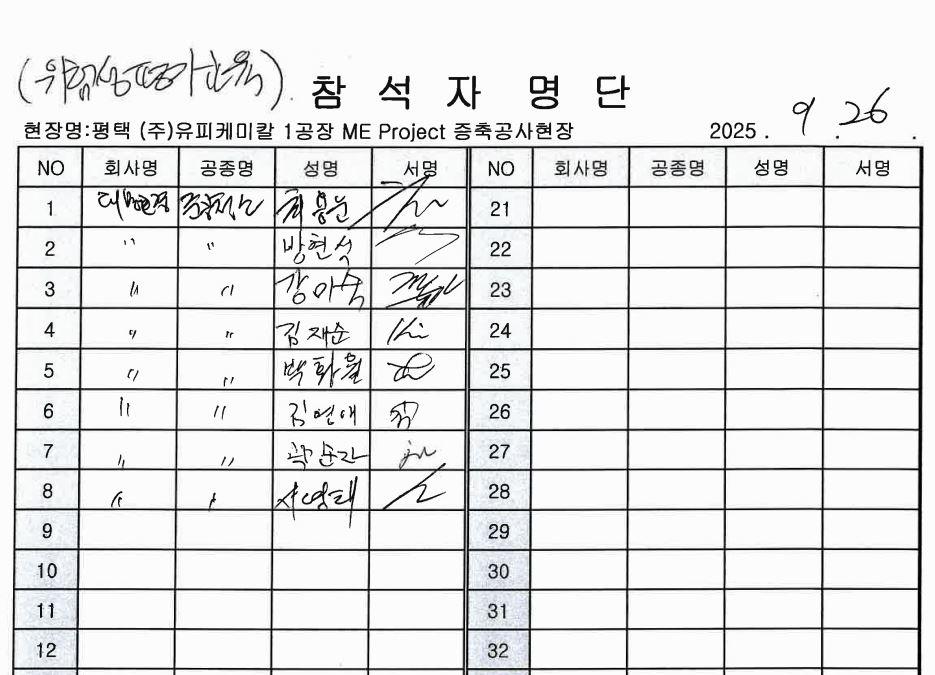 (위험성평가교육) 참석자 명단
현장명:평택 (주)유피케미칼 1공장 ME Project 증축공사현장 2025. 9. 26.
NO 회사명 공종명 성명 서명 NO 회사명 공종명 성명 서명
1 21
2 〃 〃 방현석 22
3 〃 〃 강아숙 23
4 〃 〃 김재순 24
5 〃 〃 박화월 25
6 〃 〃 김연애 26
7 〃 〃 곽순자 27
8 〃 〃 서영태 28
9 29
10 30
11 31
12 32